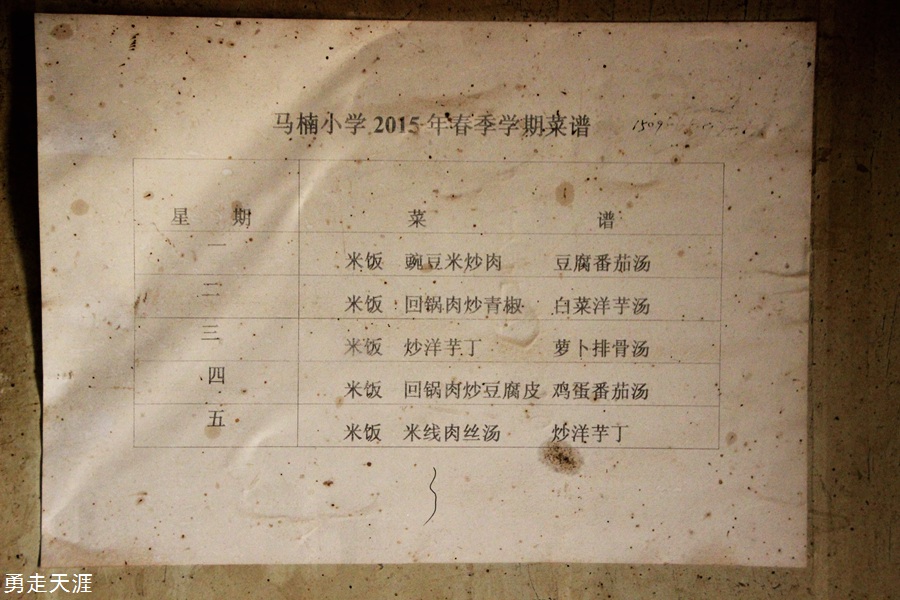 马楠小学 2015 年春季学期菜谱
星 期 菜 谱
一 米饭 豌豆米炒肉 豆腐番茄汤
二 米饭 回锅肉炒青椒 白菜洋芋汤
三 米饭 炒洋芋丁 萝卜排骨汤
四 米饭 回锅肉炒豆腐皮 鸡蛋番茄汤
五 米饭 米线肉丝汤 炒洋芋丁
勇走天涯